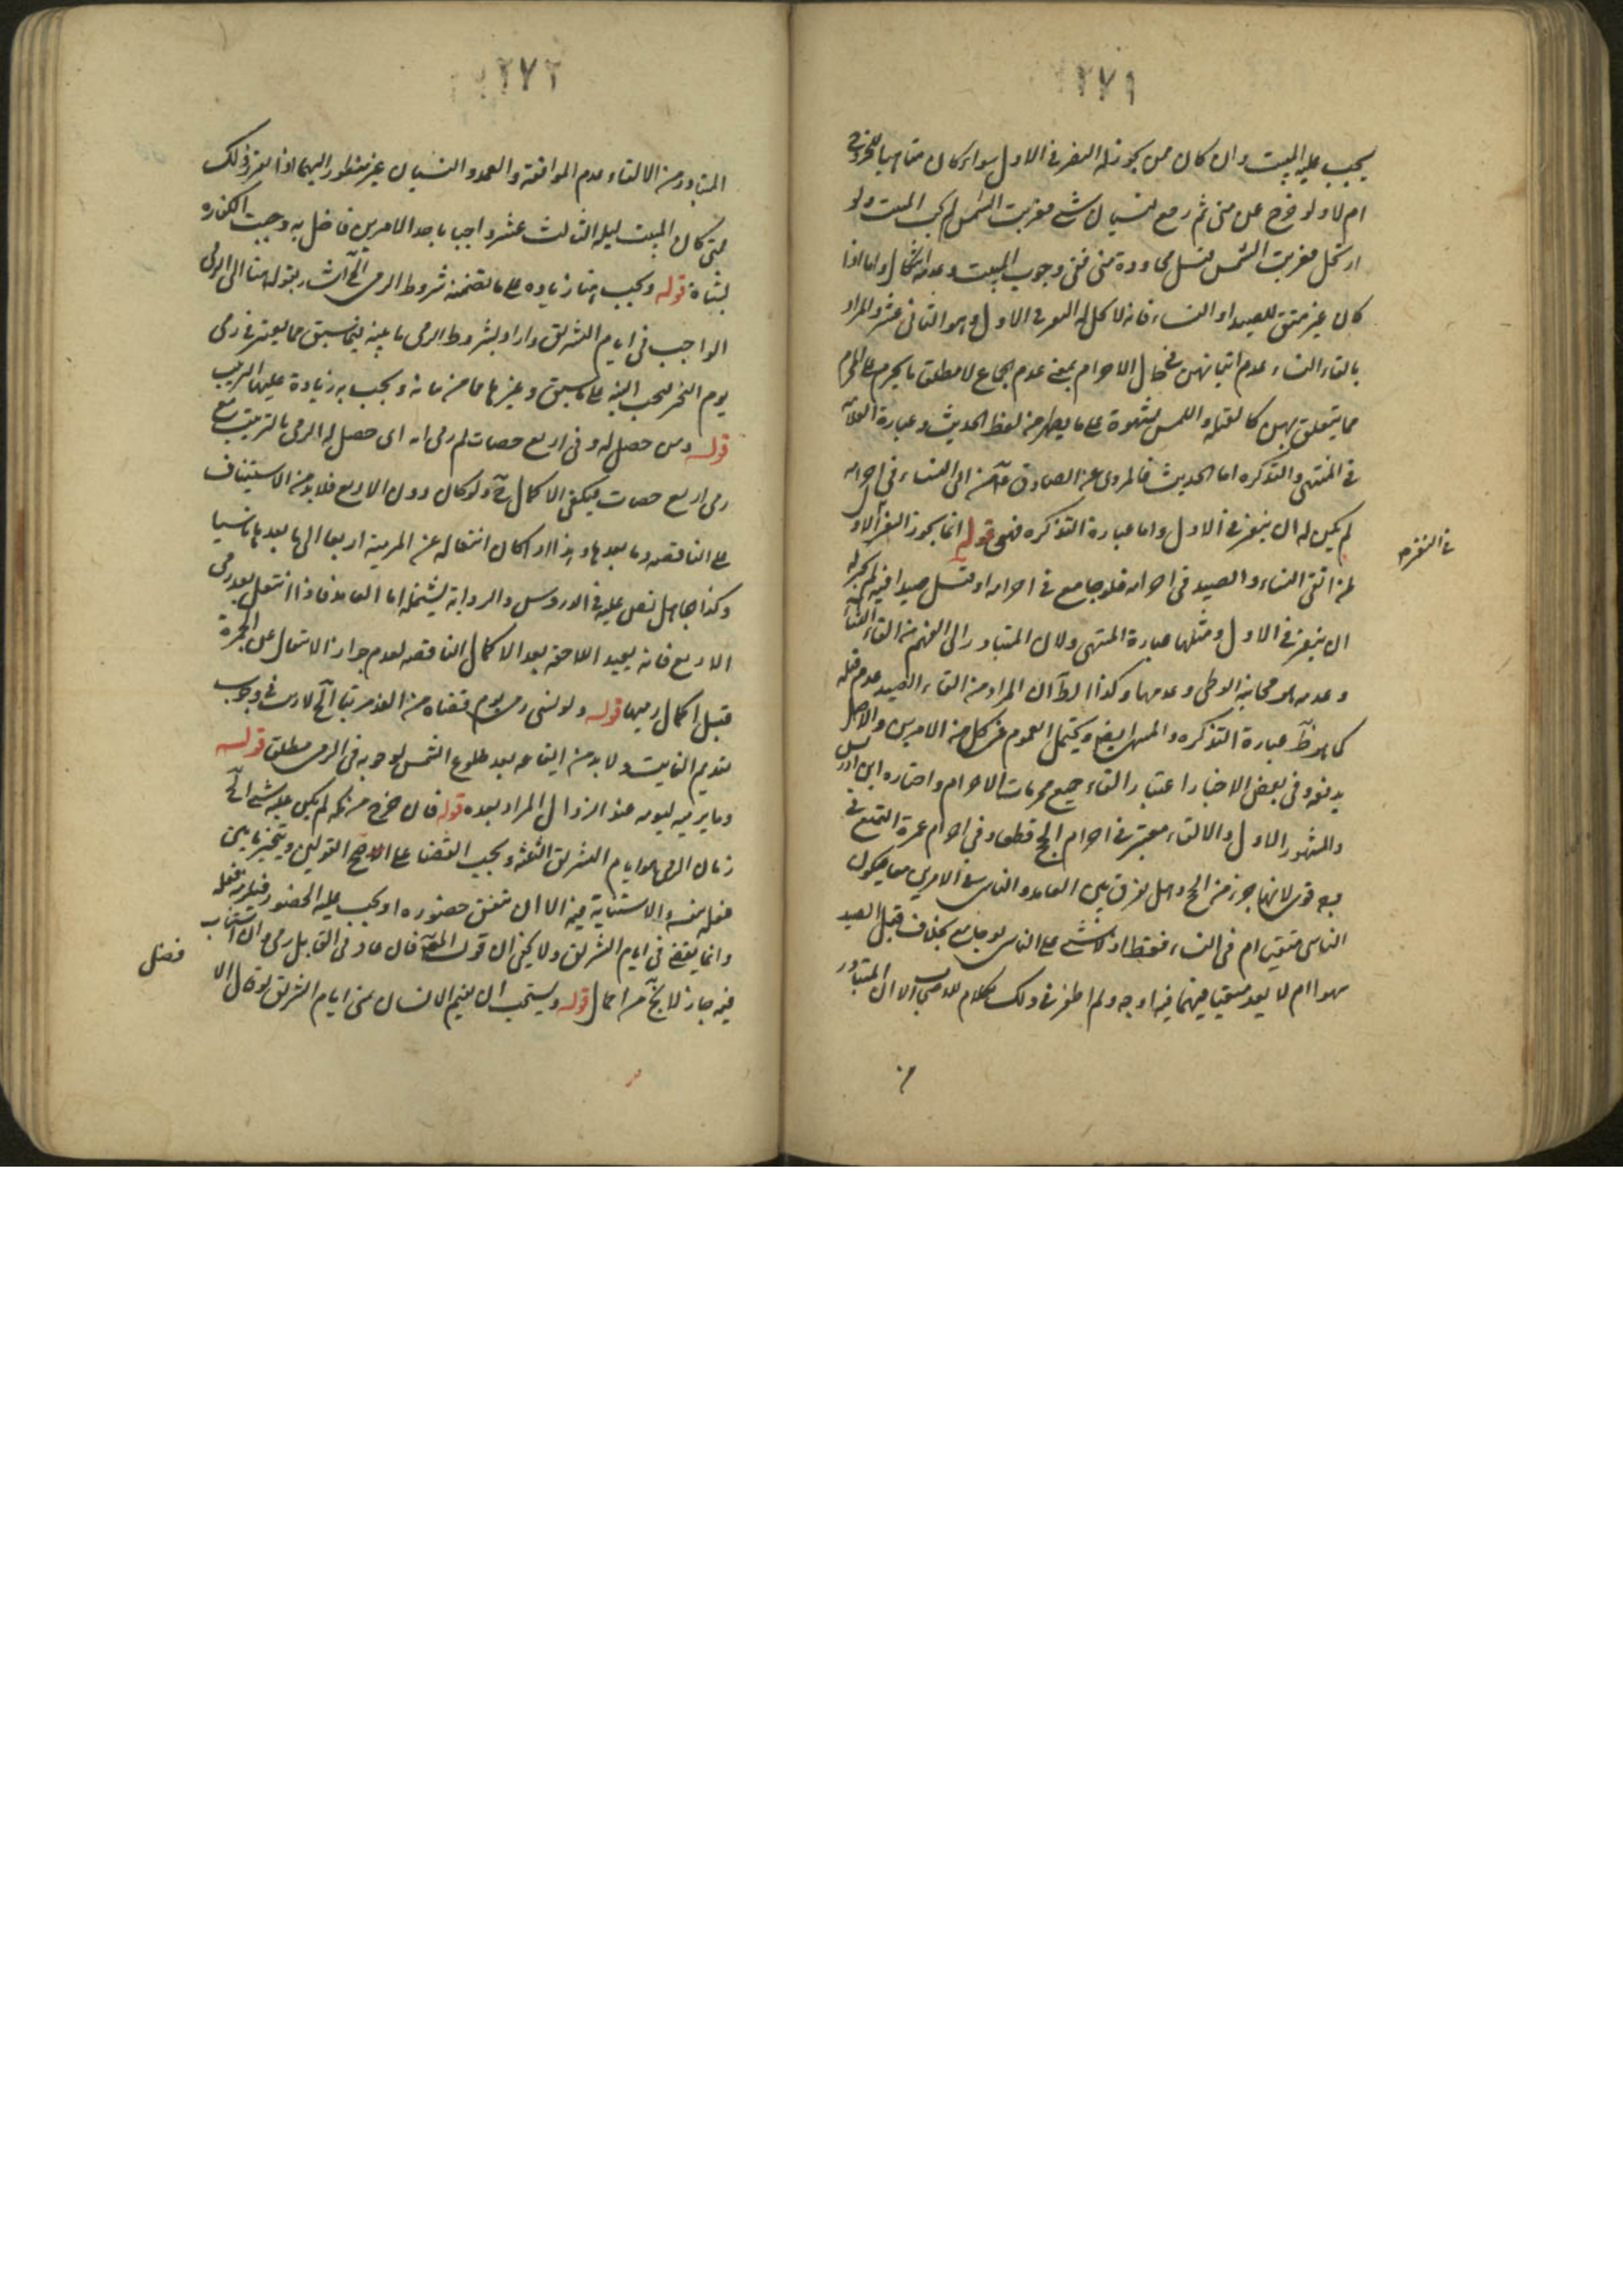 ٢٧١
يجب عليه المبيت وان كان ممن يجوز له النفر في الاول سواء كان متاهبا للخروج
ام لا ولو خرج من منى ثم رجع لنسيان شي فغربت الشمس لم يجب المبيت ولو
ارتحل فغربت الشمس قبل مجاوزة منى ففي وجوب المبيت وعدمه اشكال واما اذا
كان غير متق للصيد او النساء فانه لا يحل له النفر في الاول وهو الثاني عشر والمراد
باتقاء النساء عدم اتيانهن في حال الاحرام بمعنى عدم الجماع لا مطلق ما يحرم على المحرم
مما يتعلق بهن كالقبلة واللمس بشهوة على ما يظهر من لفظ الحديث وعبارة العلامة
في المنتهى والتذكره اما الحديث فالمروي عن الصادق من اتى النساء في احرامه
لم يكن له ان ينفر في الاول واما عبارة التذكره فهي قوله انما يجوز النفر الاول
في النفر
لمن اتقى النساء والصيد في احرامه فلو جامع في احرامه او قتل صيدا فيه لم يجز له
ان ينفر في الاول ومثلها عبارة المنتهى ولان المتبادر الى الفهم من اتقاء النساء
وعدمه هو مجانبة الوطي وعدمها وكذا الظ ان المراد من اتقاء الصيد عدم قتله
كما هو ظ عبارة التذكره والمنتهى ايضا ويحتمل العموم في كل من الامرين والاصل
يدفعه وفي بعض الاخبار اعتبار اتقاء جميع محرمات الاحرام واختاره ابن ادريس
والمشهور الاول والاتقاء معتبر في احرام الحج قطعا وفي احرام عمرة التمتع في
وجه قوي لانها جزء من الحج وهل يفرق بين العامد والناسي في الامرين معا فيكون
الناسي متقيا ام في النساء فقط اذ لا شي على الناسي لو جامع بخلاف قتل الصيد
سهوا ام لا يعد متقيا فيهما فيه اوجه ولم اظفر في ذلك بكلام للاصحاب الا ان المتبادر
٢٧٢
المتبادر من الاتقاء عدم المواقعة والعمد والنسيان غير منظور اليهما اذا تقرر ذلك
فمتى كان المبيت ليلة الثالث عشر واجبا باحد الامرين فاخل به وجبت الكفاره
بشاة قوله ويجب هنا زياده على ما تضمنه شروط الرمي الخ اشار بقوله هنا الى الرمي
الواجب في ايام التشريق واراد بشروط الرمي ما بينه فيما سبق مما يعتبر في رمي
يوم النحر فيجب النية على ما سبق وغيرها مما مر بيانه ويجب به زيادة عليها الترتيب
قوله ومن حصل له رمي اربع حصيات ثم رمى اي حصل له الرمي بالترتيب مع
رمي اربع حصيات فيكفي الاكمال ح ولو كان دون الاربع فلا بد من الاستيناف
على الناقصه وما بعدها وهذا اذا كان انتقاله عن المرمية اربعا الى ما بعدها ناسيا
وكذا جاهل نص عليه في الدروس والرواية يشمله اما العامد فاذا انتقل بعد رمي
الاربع فانه يعيد اللاحقه بعد الاكمال الناقصه لعدم جواز الانتقال عن الجمرة
قبل اكمال رميها قوله ولو نسي رمي يوم قضاه من الغد مرتبا الخ لا ريب في وجوب
تقديم الفايت ولا بد من ايقاعه بعد طلوع الشمس لوجوبه في الرمي مطلقا قوله
وما يرميه ليومه عند الزوال المراد بعده قوله فان خرج من مكه لم يكن عليه شي الخ
زمان الرمي هو ايام التشريق الثلثه ويجب القضا على الاصح القولين ويتخير ما بين
فعله بنفسه والاستنابة فيه الا ان يتفق حضوره او يجب عليه الحضور فيلزم فعله
وانما يقضى في ايام التشريق ولا يخفى ان قول المص فان عاد في القابل رمى وان استناب
فيه جاز لا يخ من اجمال قوله ويستحب ان يقيم الانسان بمنى ايام التشريق لو قال الا
فضل